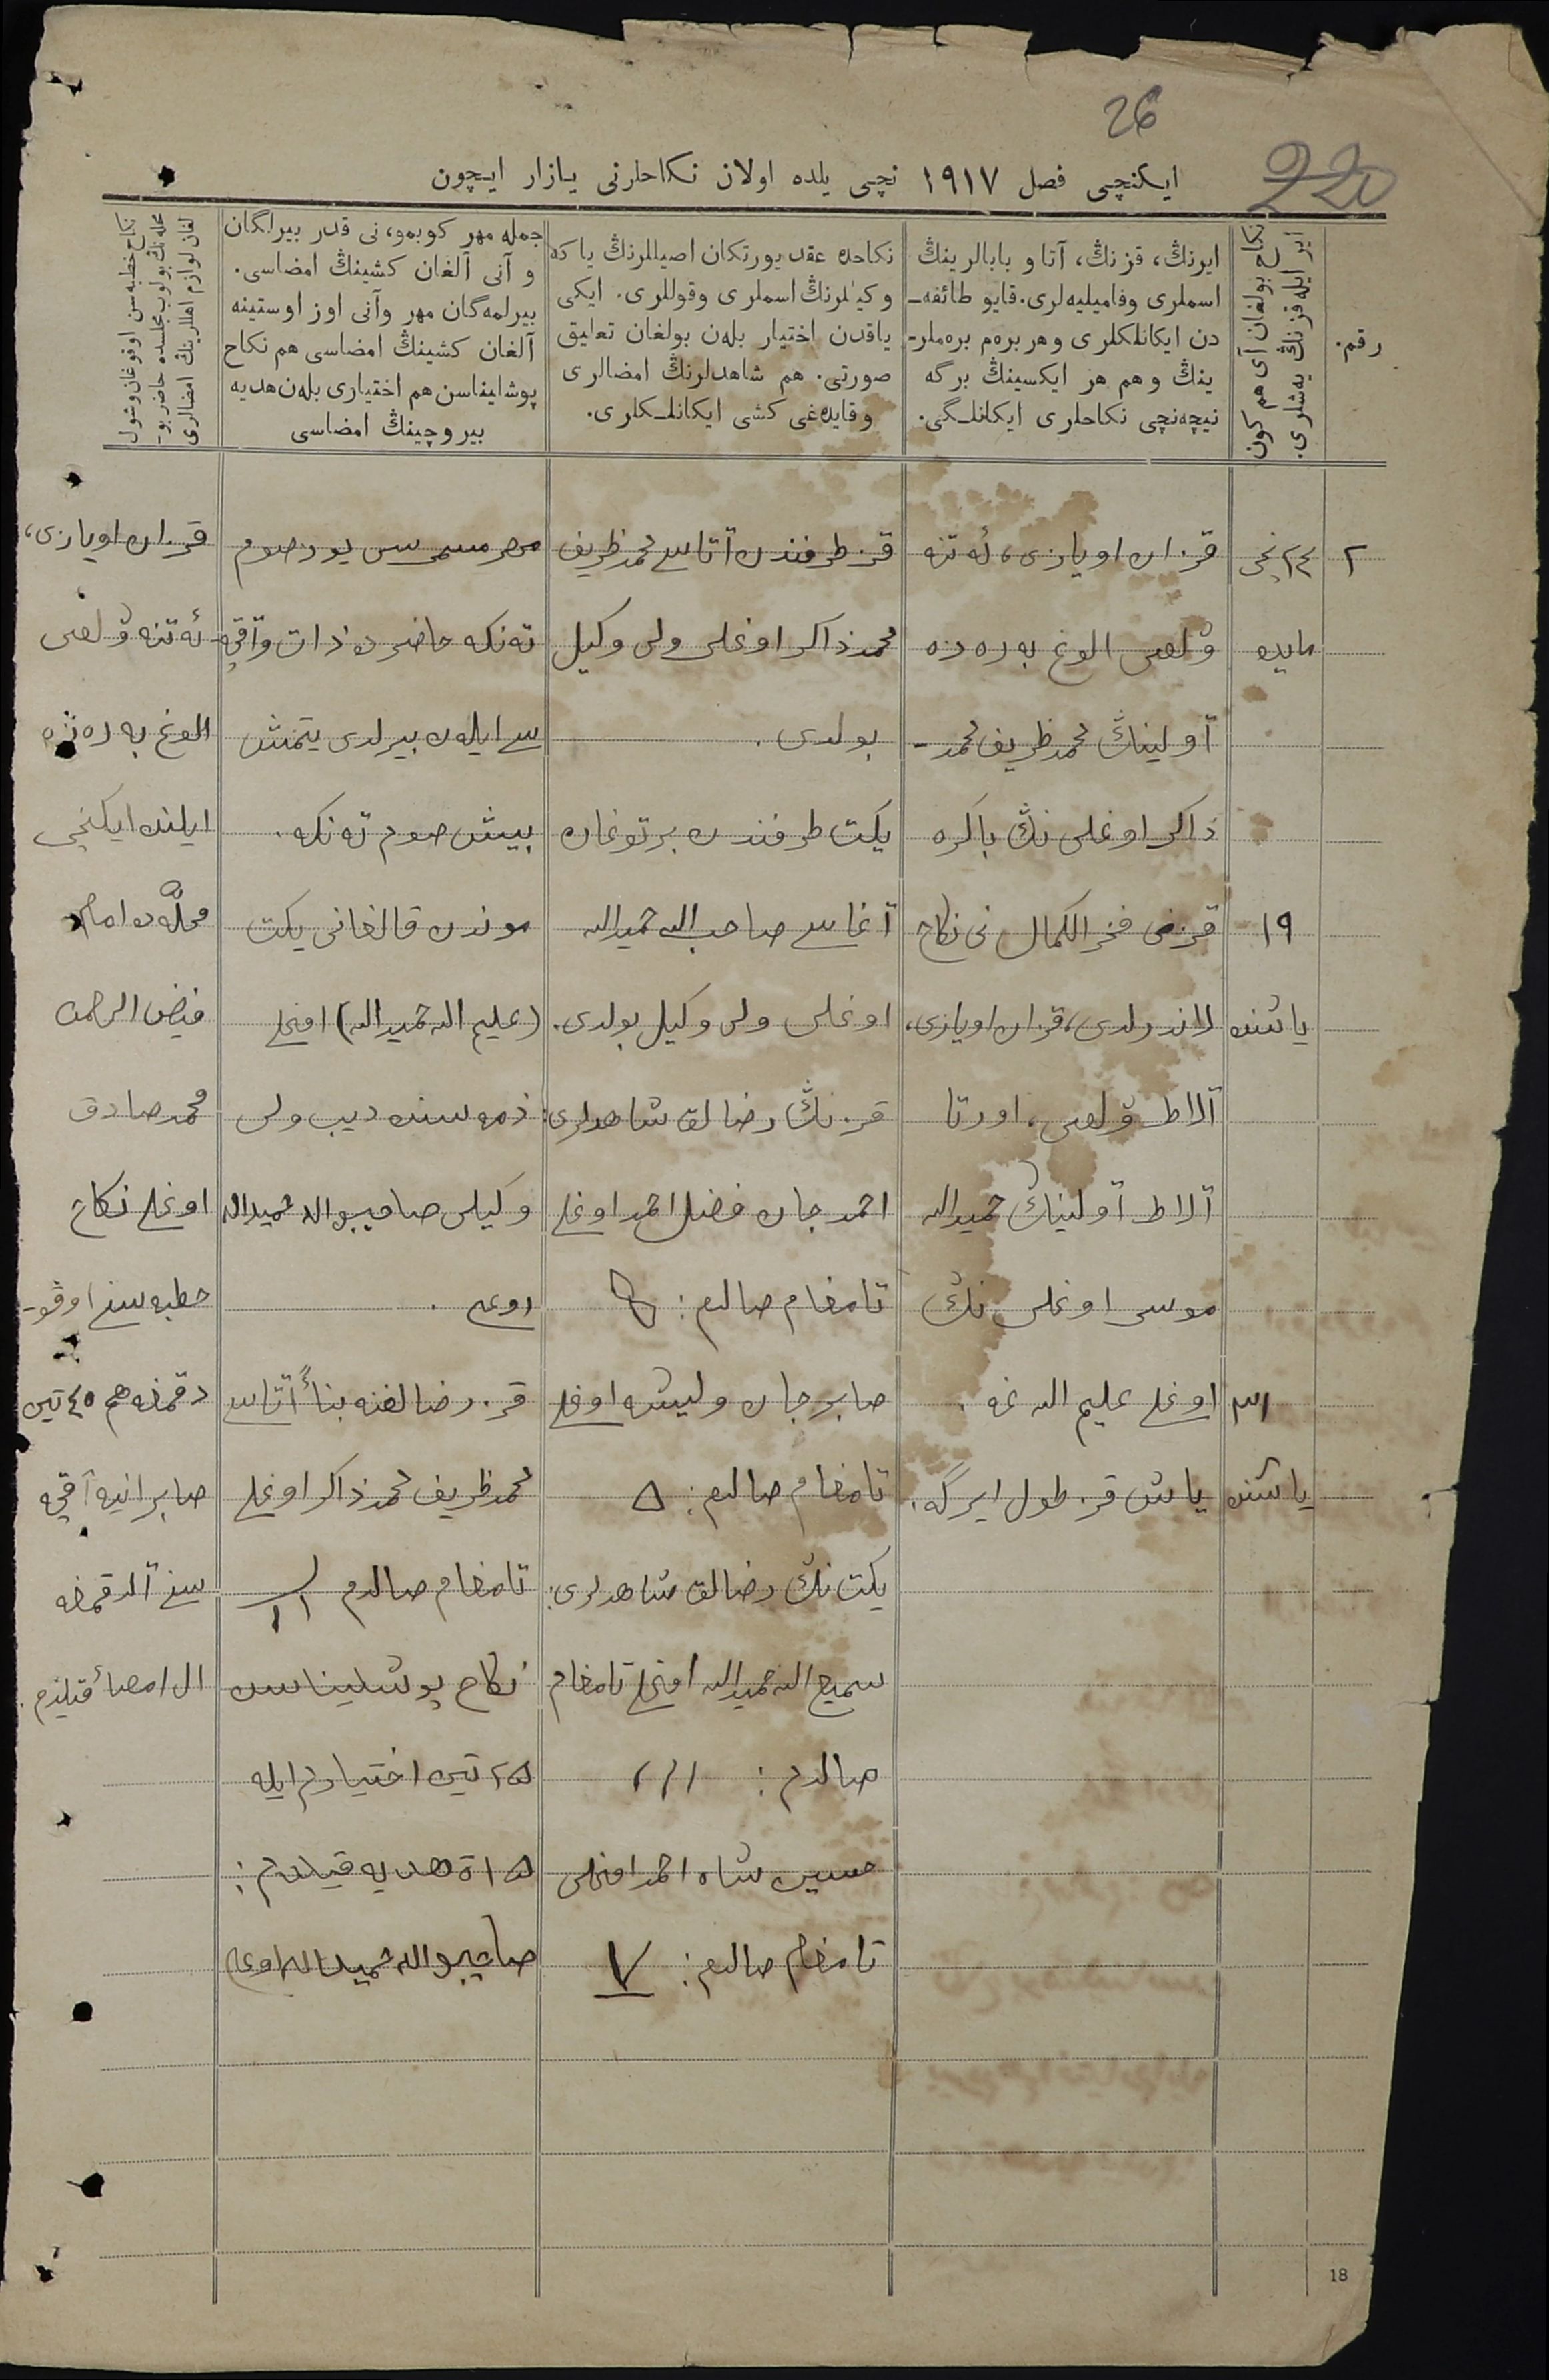 26
220
ایكنچی فصل ۱۹۱۷ نچی یلده اولان نكاحلرنی یازار ایچون
رقم.
نكاح بولغان آی هم كون
ایر ایله قزنڭ یه‌شلری.
ایرنڭ، قزنڭ، آتا و بابالرینڭ
اسملری وفامیلیه‌لری. قایو طائفه‌ـ
دن ایكانلكلری و هر برەم برەملرـ
ینڭ و هم هر ایكسینڭ برگه
نیچه‌نچی نكاحلری ایكانلـگی.
نكاحده عقد یورتكان اصیللرنڭ یا كه
وكیللرنڭ اسملری وقوللری. ایكی
یاقدن اختیار بله‌ن بولغان تعلیق
صورتی. هم شاهدلرنڭ امضالری
وقایده‌غی كشی ایكانلـكلری.
جمله مهر كوبمو، نی قدر بیرلگان
و آنی آلغان كشینڭ امضاسی.
بیرلمه‌گان مهر وآنی اوز اوستینه
آلغان كشینڭ امضاسی هم نكاح
پوشلیناسن هم اختیاری بله‌ن هدیه
بیروچینڭ امضاسی
نكاح خطبه‌سن اوقوغان وشول
محله‌نڭ بولوب مجلسده حاضر بوـ
لغان لوازم اهللرینڭ امضالری
۲
۲۴ نچی
مایده
۱۹
یاشنده
۳۱
یاشنده
قزان اویازی، ئه‌تنه
ۋلصی الوغ به‌ره‌زه
آولیناڭ محمدظریف محمدـ
ذاكر اوغلی نڭ باكره
قزی فخرالكمال نی نكاح
لاندرلدی، قزان اویازی،
آلاط ۋلصی، اورتا
آلاط آولیناڭ حمیدالله
موسی اوغلی نڭ
اوغلی علیم الله غه.
یاش قز طول ایرگه.
قز طرفندن آتاسی محمدظریف
محمدذاكر اوغلی ولی وكیل
بولدی.
یكت طرفندن برتوغان
آغاسی صاحب الله حمیدالله
اوغلی ولی وكیل بولدی.
قزنڭ رضالق شاهدلری:
احمدجان فضل احمد اوغلی
تامغام صالدم:
صابرجان ولیشه اوغلی
تامغام صالدم: ۵
یكت نڭ رضالق شاهدلری:
سمیع الله حمیدالله اوغلی تامغام
صالدم: ١١١
حسین شاه احمد اوغلی
تامغام صالدم: ٧
مهر مسمی سی یوز صوم
ته‌نكه حاضر ده ذات وآقچه‌ـ
سی ایله‌ن بیرلدی یتمش
بیش صوم ته‌نكه.
موندن قالغانی یكت
(علیم الله حمیدالله) اوغلی
ذمه‌سنده دیب ولی
وكیلی صاحیبوالله حمیدالله
اوغلی.
قز رضالغنه بناءً آتاسی
محمدظریف محمدذاكر اوغلی
تامغام صالدم
نكاح پوشلیناسن
۲۵ تین اختیارم ایله
۱۵ ت هدیه قیلدم:
صاحیبوالله حمیدالله اوغلی
قزان اویازی،
ئه‌تنه ۋلصی
الوغ به‌ره‌زه
ایلنده ایكنچی
محلّه‌ده امام
فیض الرحمن
محمدصادق
اوغلی نكاح
خطبه‌سن اوقوـ
دقمغه هم ۴۵ تین
صابرانیه آقچه
سن آلدقمغه
ال امضاء قیلدم.
18